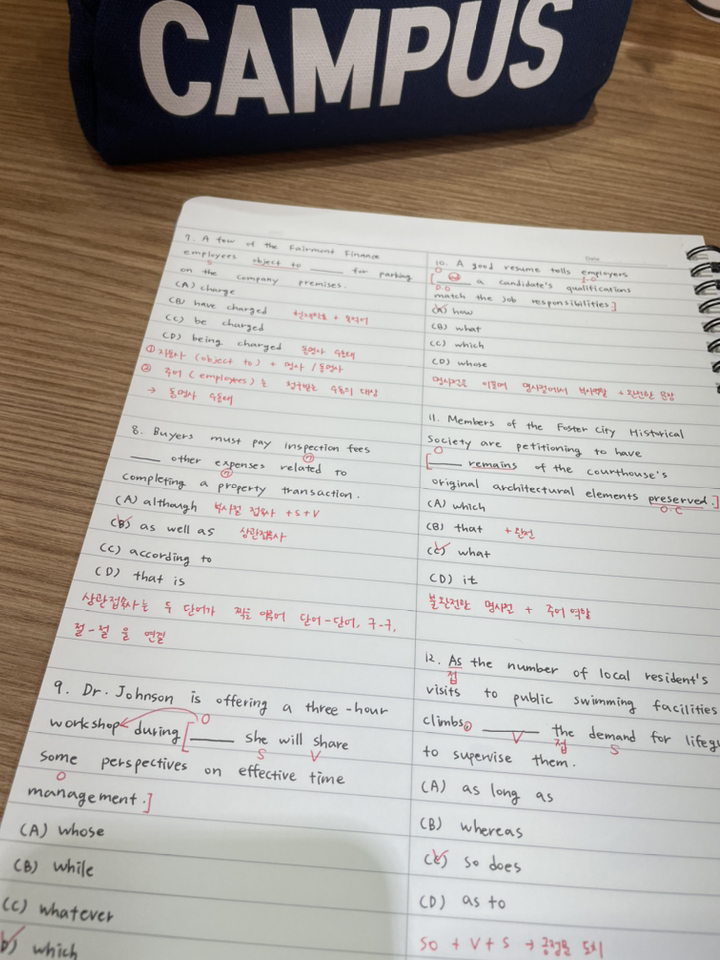 CAMPUS
7. A few of the Fairmont Finance
employees object to ____ for parking
on the company premises.
(A) charge
(B) have charged 현재완료 + 목적어
(C) be charged
(D) being charged 동명사 수동태
① 자동사 (object to) + 명사 / 동명사
② 주어 (employees) 는 청구받는 수동의 대상
→ 동명사 수동태
8. Buyers must pay inspection fees
ⓝ
____ other expenses related to
ⓝ
completing a property transaction.
(A) although 부사절 접속사 + S + V
(B) as well as 상관접속사
(C) according to
(D) that is
상관접속사는 두 단어가 짝을 이뤄 단어-단어, 구-구,
절-절 을 연결
9. Dr. Johnson is offering a three-hour
O
workshop during [____ she will share
S V
some perspectives on effective time
O
management.]
(A) whose
(B) while
(C) whatever
(D) which
Date
10. A good resume tells employers
O I.O
[____ a candidate's qualifications
D.O
match the job responsibilities.]
(A) how
(B) what
(C) which
(D) whose
명사절을 이끌며 명사절에서 부사역할 + 완전한 문장
11. Members of the Foster City Historical
Society are petitioning to have
O
[____ remains of the courthouse's
original architectural elements preserved.]
O.C
(A) which
(B) that + 완전
(C) what
(D) it
불완전한 명사절 + 주어 역할
12. As the number of local resident's
접
visits to public swimming facilities
climbs, ____ the demand for
V 접 S
to supervise them.
(A) as long as
(B) whereas
(C) so does
(D) as to
so + V + S → 긍정문 도치